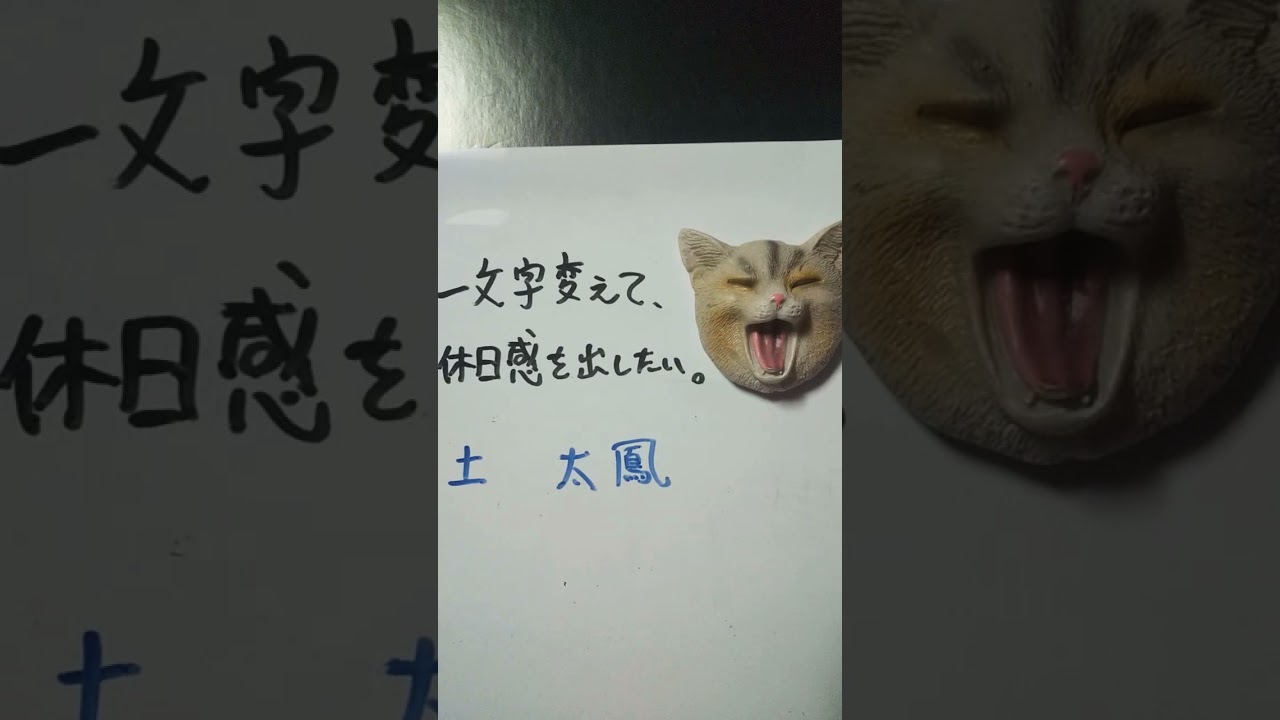 一文字変えて、
休日感を出したい。
土 太鳳